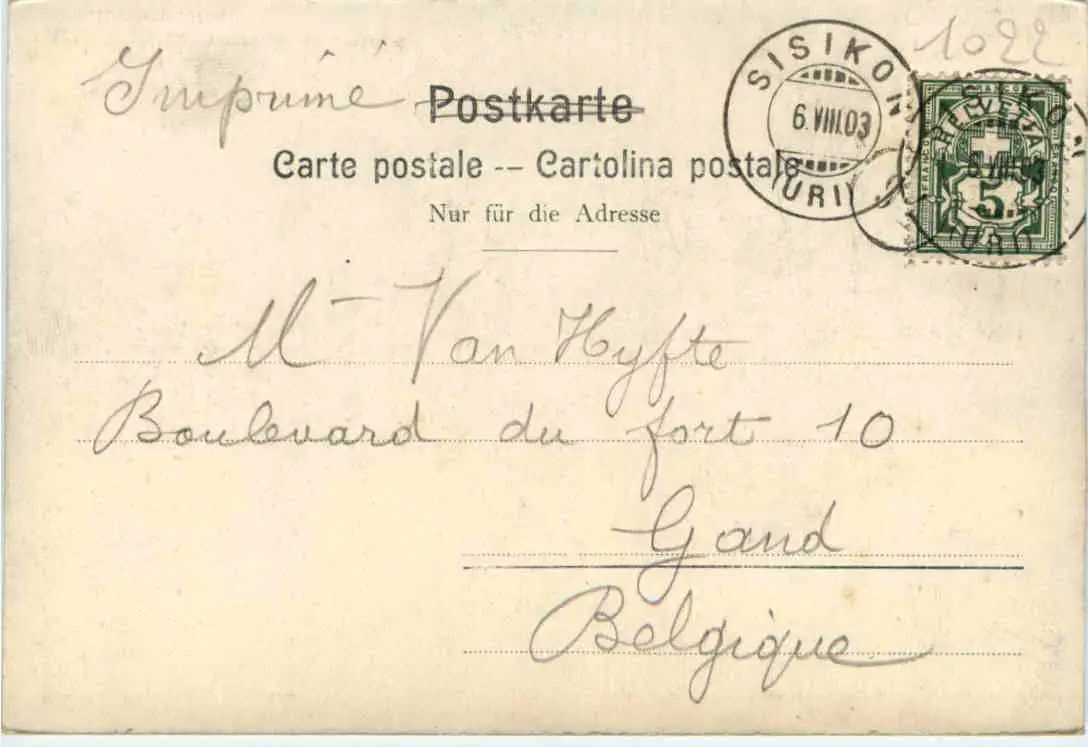 1022
Imprimé Postkarte
Carte postale -- Cartolina postale
Nur für die Adresse
SISIKON
6.VIII.03
(URI)
HELVETIA
FRANCO
5
SISIKON
6.VIII.03
(URI)
Mr Van Hyfte
Boulevard du fort 10
Gand
Belgique